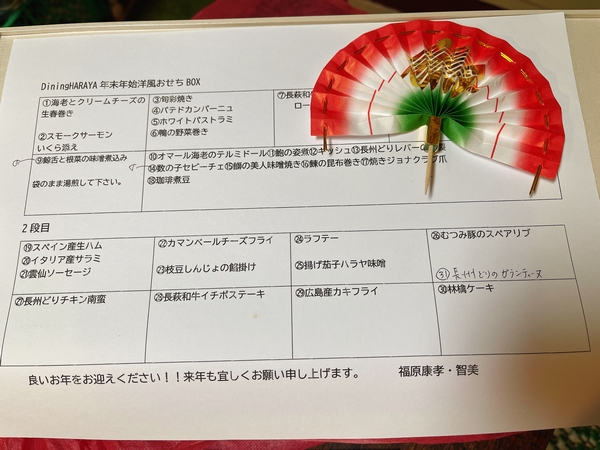 DiningHARAYA 年末年始洋風おせち BOX
①海老とクリームチーズの
生春巻き
②スモークサーモン
いくら添え
③旬彩焼き
④パテドカンパーニュ
⑤ホワイトパストラミ
⑥鴨の野菜巻き
⑦長萩和
ロー
⑨鯨舌と根菜の味噌煮込み
袋のまま湯煎して下さい。
⑩オマール海老のテルミドール⑪鮑の姿煮⑫キッシュ⑬長州どりレバー
⑭数の子セビーチェ⑮鰤の美人味噌焼き⑯鰊の昆布巻き⑰焼きジョナクラブ爪
⑱珈琲煮豆
2段目
⑲スペイン産生ハム
⑳イタリア産サラミ
㉑雲仙ソーセージ
㉒カマンベールチーズフライ
㉓枝豆しんじょの餡掛け
㉔ラフテー
㉕揚げ茄子ハラヤ味噌
㉖むつみ豚のスペアリブ
㉛長州どりのガランティーヌ
㉗長州どりチキン南蛮
㉘長萩和牛イチボステーキ
㉙広島産カキフライ
㉚林檎ケーキ
良いお年をお迎えください！！来年も宜しくお願い申し上げます。 福原康孝・智美